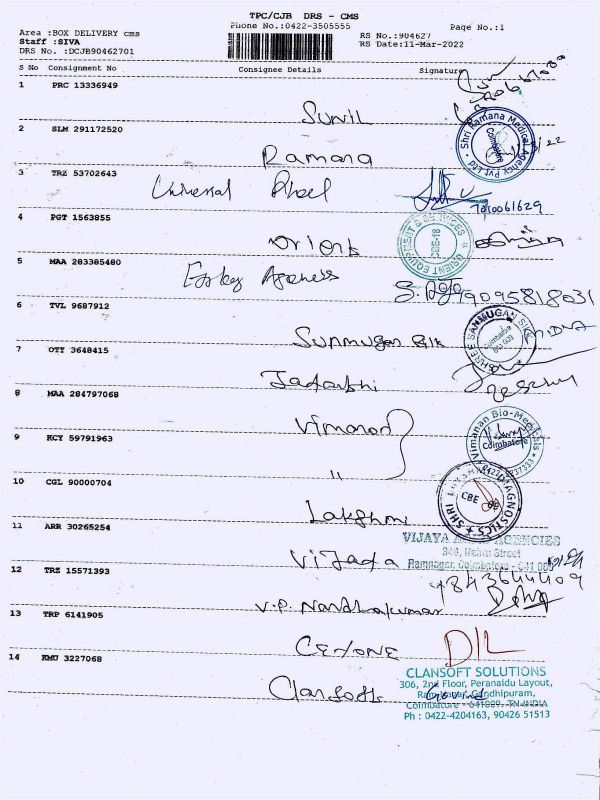 TPC/CJB DRS - CMS
Phone No.:0422-3505555
Page No.:1
Area :BOX DELIVERY cms
RS No.:904627
Staff :SIVA
RS Date:11-Mar-2022
DRS No. :DCJB90462701
S No Consignment No Consignee Details Signature
1 PRC 13336949
Sunil
2 SLM 291172520
Shri Ramana Medical Agency Pvt Ltd
Coimbatore
Ramana
3 TRZ 53702643
Universal
7010061629
4 PGT 1563855
Orient
ORIENT EQUIPMENT & SERVICES
CBE-18
5 MAA 283385480
Agencies
9095818031
6 TVL 9687912
Sunmugan Silk
SHREE SANMUGAN SILK
Coimbatore
7 OTY 3648415
8 MAA 284797068
Vimanan
Vimanan Bio-Medicals
Coimbatore
9 KCY 59791963
"
10 CGL 90000704
Lakshmi
SHRI DIAGNOSTICS
CBE
11 ARR 30265254
VIJAYA AGENCIES
348, Nehru Street
Ramnagar, Coimbatore - 641 009
Vijaya
12 TRZ 15571393
9843644409
V.P. Nandhakumar
13 TRP 6141905
CEYONE
DIL
14 KMU 3227068
Clansoft
CLANSOFT SOLUTIONS
306, 2nd Floor, Peranaidu Layout,
Ram Nagar, Gandhipuram,
Govind
Coimbatore - 641009. TN-INDIA
Ph : 0422-4204163, 90426 51513